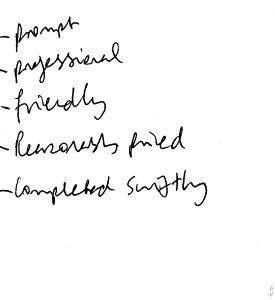 - prompt
- professional
- friendly
- Reasonably priced
- Completed swiftly